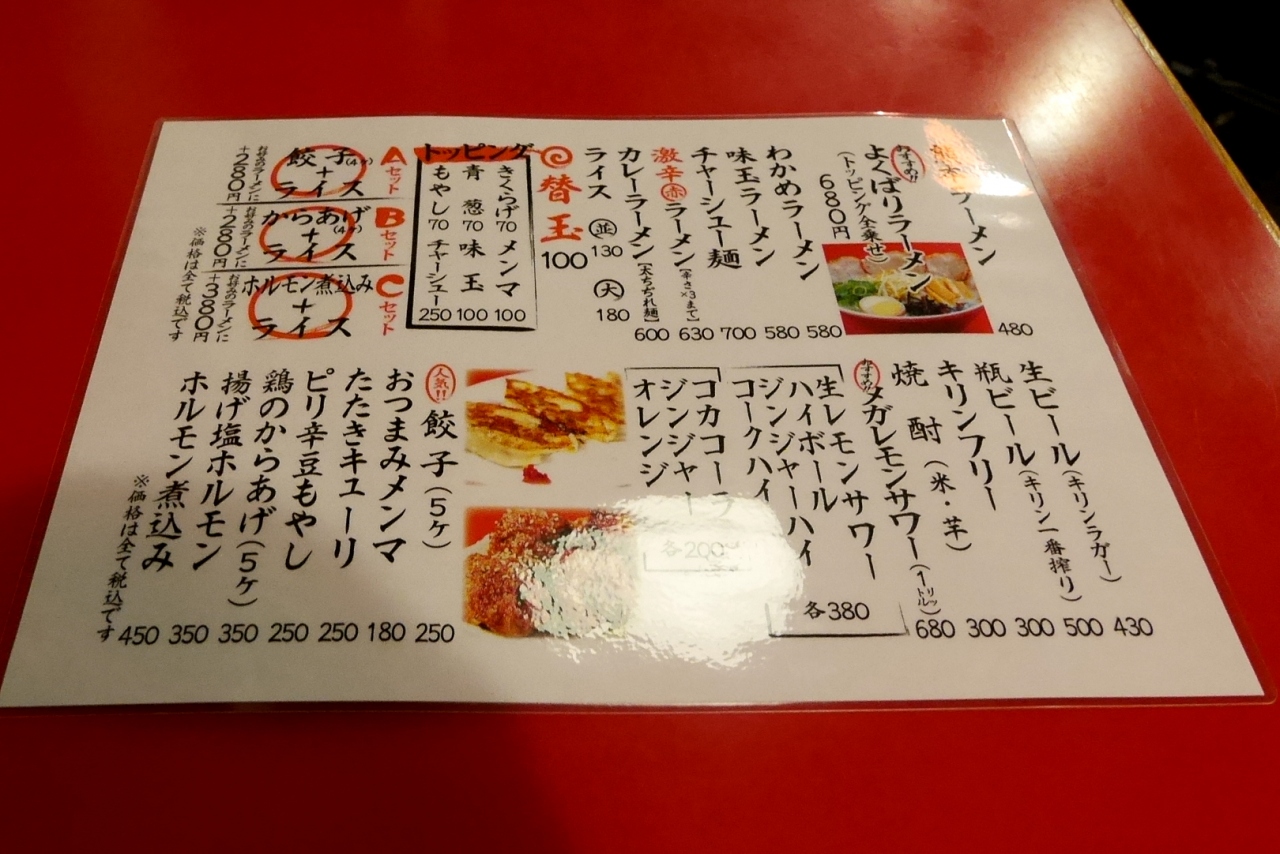 熊本ラーメン 480
おすすめ!!
よくばりラーメン
(トッピング全乗せ)
680円
わかめラーメン 580
味玉ラーメン 580
チャーシュー麺 700
激辛赤ラーメン(辛さ×3まで) 630
カレーラーメン【太ちぢれ麺】 600
ライス 並 130 大 180
替玉 100
トッピング
きくらげ 70 メンマ 100
青葱 70 味玉 100
もやし 70 チャーシュー 250
Aセット
餃子(4ヶ)+ライス
お好みのラーメンに
+280円
Bセット
からあげ(4ヶ)+ライス
お好みのラーメンに
+280円
Cセット
ホルモン煮込み+ライス
お好みのラーメンに
+380円
※価格は全て税込です
生ビール(キリンラガー) 430
瓶ビール(キリン一番搾り) 500
キリンフリー 300
焼酎(米・芋) 300
おすすめ!!
メガレモンサワー(1リットル) 680
生レモンサワー
ハイボール
ジンジャーハイ
コークハイ
各380
コカコーラ
ジンジャー
オレンジ
各200
人気!!
餃子(5ヶ) 250
おつまみメンマ 180
たたきキューリ 250
ピリ辛豆もやし 250
鶏のからあげ(5ヶ) 350
揚げ塩ホルモン 350
ホルモン煮込み 450
※価格は全て税込です